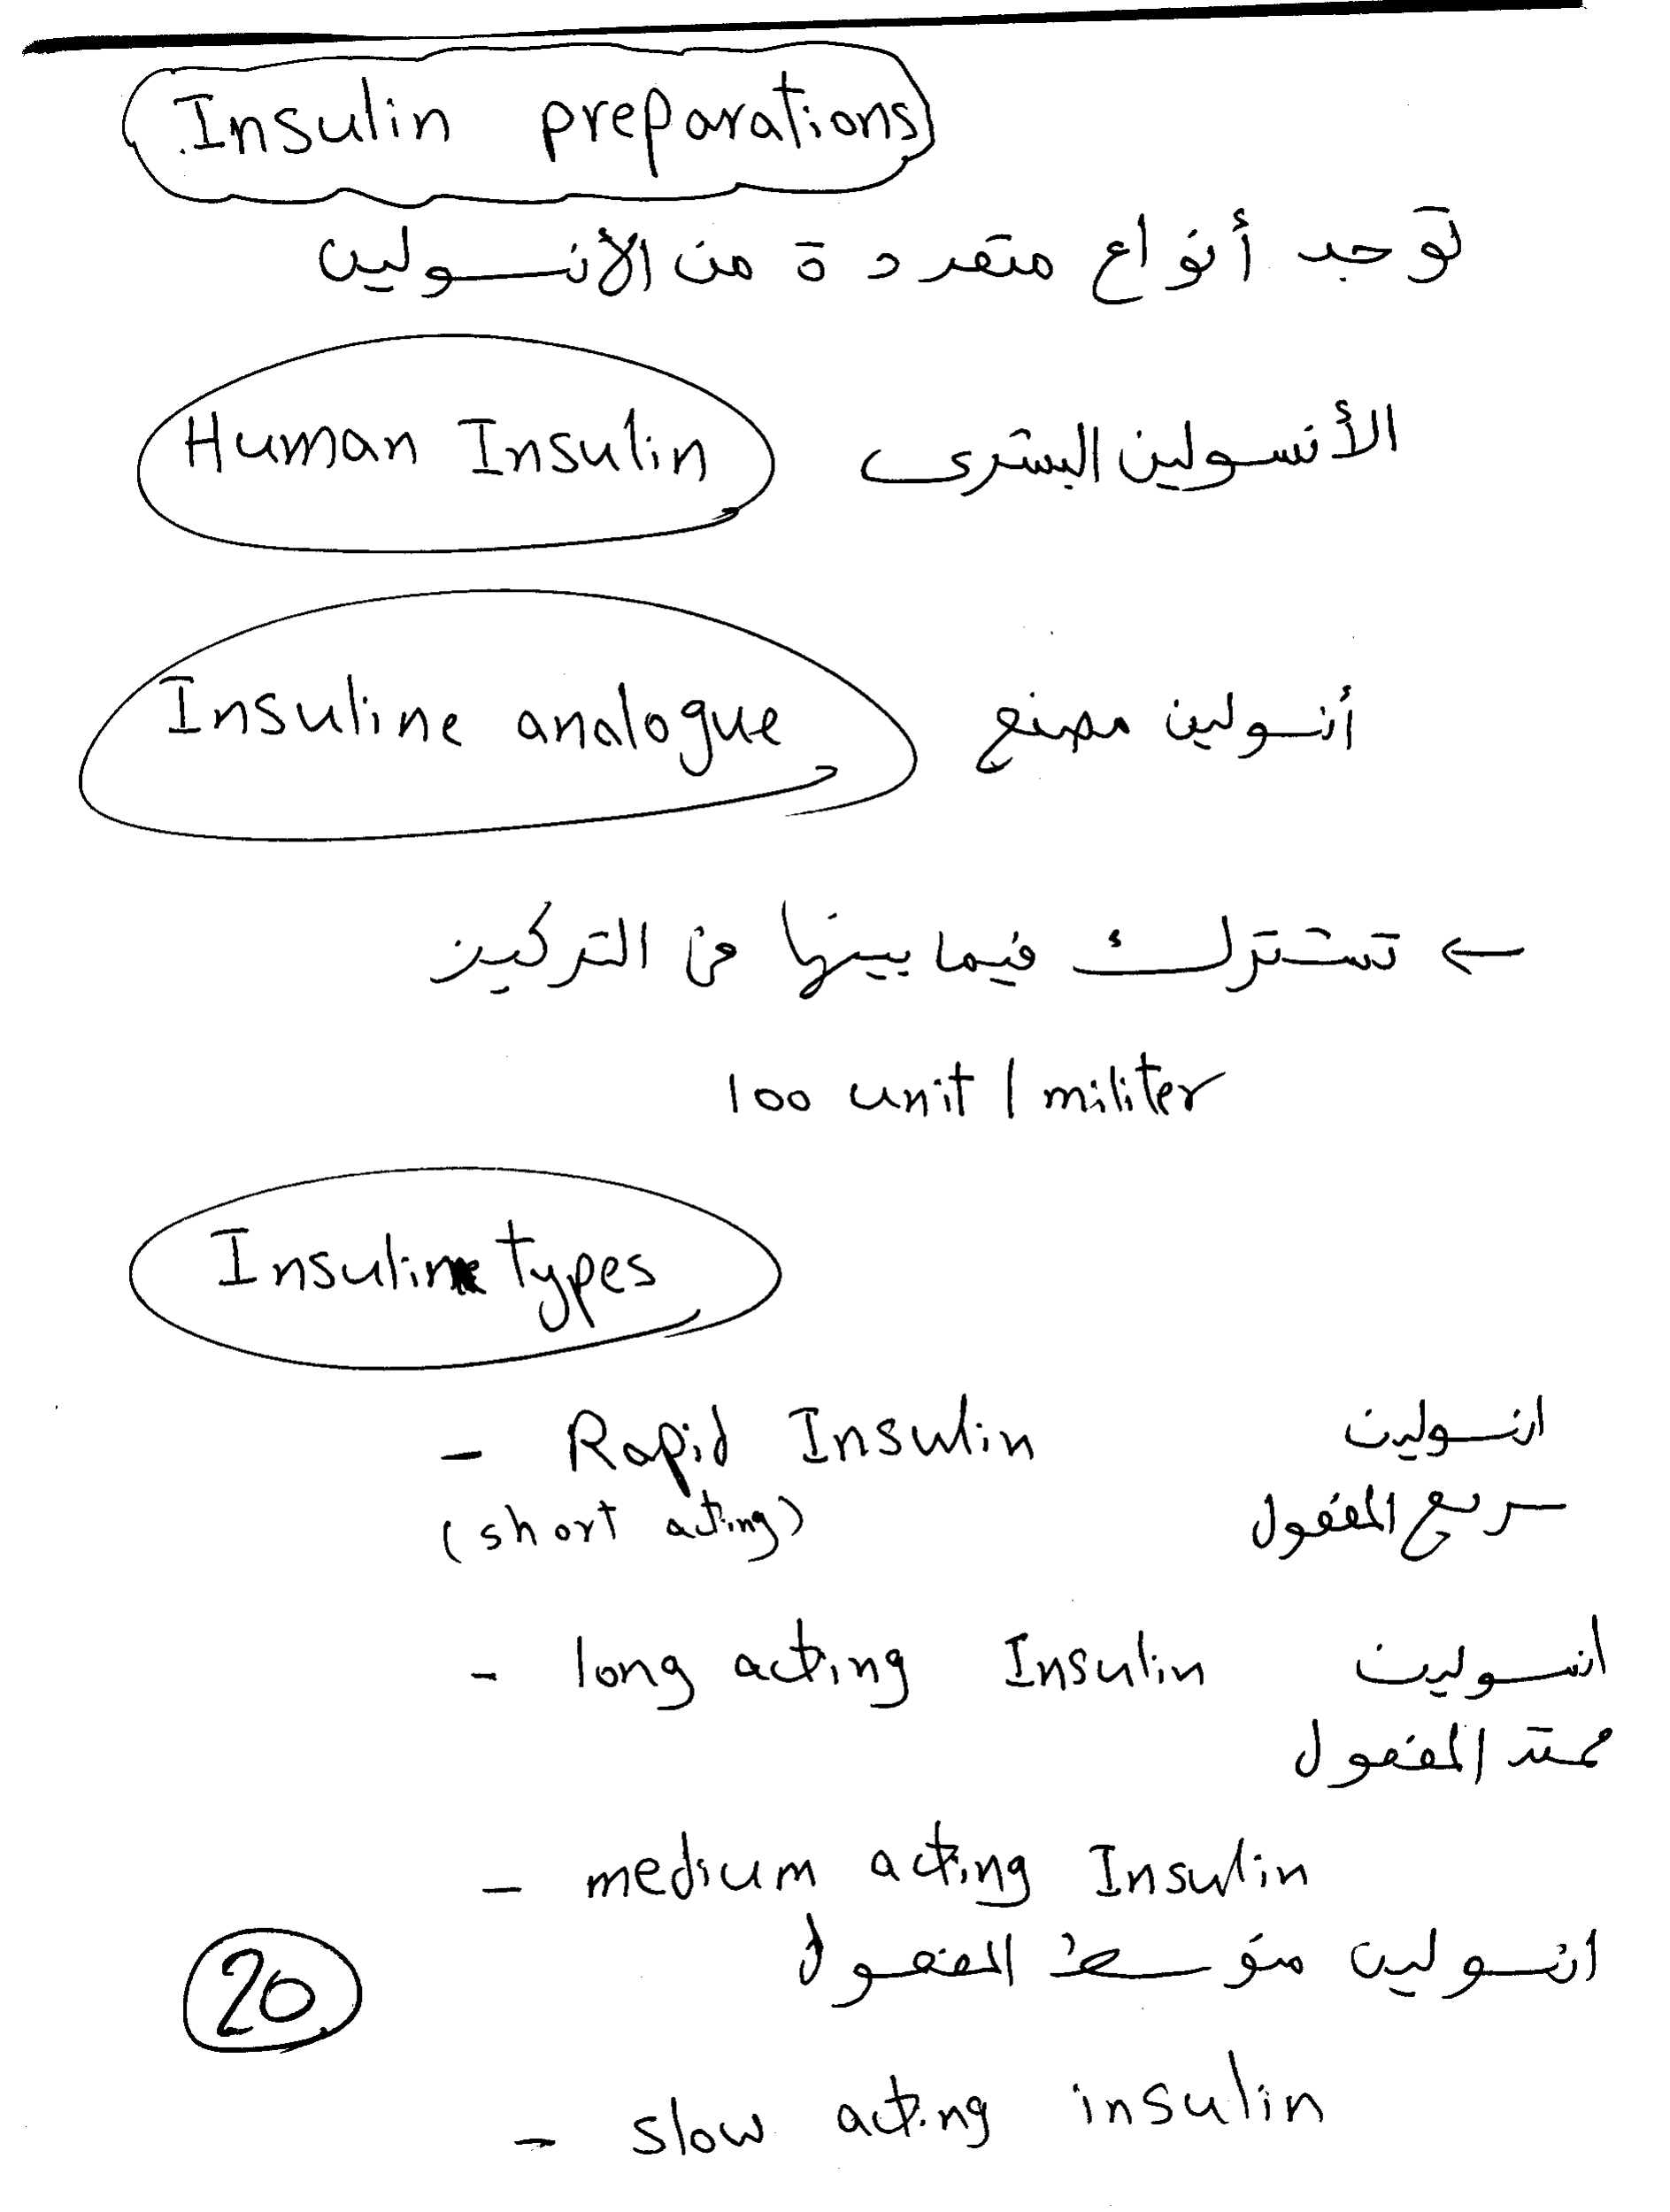 Insulin preparations
توجد أنواع متعددة من الأنسولين
Human Insulin الأنسولين البشرى
Insuline analogue أنسولين مصنع
← تشترك فيما بينها فى التركيز
100 unit / militer
Insulin types
- Rapid Insulin انسولين
(short acting) سريع المفعول
- long acting Insulin انسولين
ممتد المفعول
- medium acting Insulin
انسولين متوسط المفعول
20
- slow acting insulin